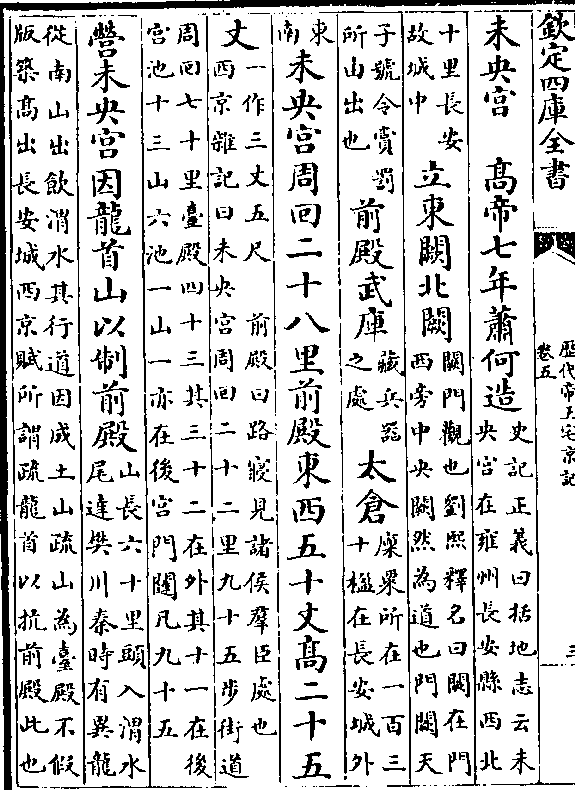 欽定四庫全書
歷代帝王宅京記
卷五
三
未央宫　髙帝七年蕭何造
史記正義曰括地志云未
央宫在雍州長安縣西北
十里長安
故城中
立東闕北闕
闕門觀也劉熙釋名曰闕在門
西旁中央闕然為道也門闕天
子號令賞罰
所山出也
前殿武庫
藏兵噐
之處
太倉
廩粟所在一百三
十楹在長安城外
東
南
未央宫周回二十八里前殿東西五十丈髙二十五
丈
一作三丈五尺　前殿曰路寢見諸侯羣臣處也
西京雜記曰未央宫周回二十二里九十五步街道
周回七十里臺殿四十三其三十二在外其十一在後
宫池十三山六池一山一亦在後宫門闥凡九十五
營未央宫因龍首山以制前殿
山長六十里頭入渭水
尾達樊川秦時有異龍
從南山出飲渭水其行道因成土山疏山為臺殿不假
版築髙出長安城西京賦所謂疏龍首以抗前殿此也